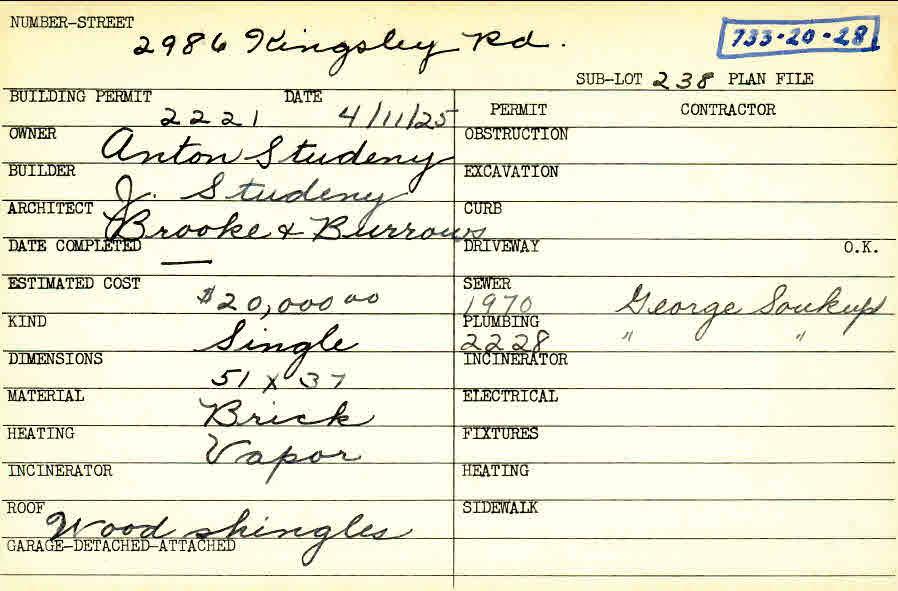 NUMBER-STREET
2986 Kingsley Rd.
733-20-28
SUB-LOT 238 PLAN FILE
BUILDING PERMIT DATE
2221 4/11/25
PERMIT CONTRACTOR
OWNER Anton Studeny
OBSTRUCTION
BUILDER J. Studeny
EXCAVATION
ARCHITECT Brooke & Burrows
CURB
DATE COMPLETED —
DRIVEWAY O.K.
ESTIMATED COST $20,000 00
SEWER
1970 George Soukup
KIND Single
PLUMBING
2228 " "
DIMENSIONS 51 x 37
INCINERATOR
MATERIAL Brick
ELECTRICAL
HEATING Vapor
FIXTURES
INCINERATOR
HEATING
ROOF Wood shingles
SIDEWALK
GARAGE-DETACHED-ATTACHED